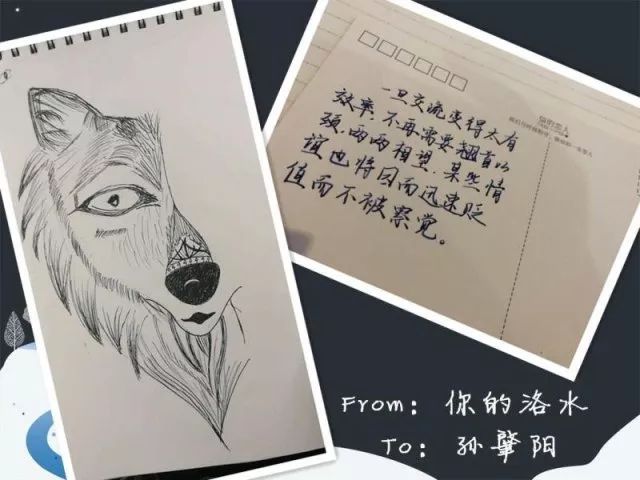 一旦交流变得太有
效率，不再需要翘首以
颈，两两相望，某些情
谊也将因而迅速贬
值而不被察觉。
From：你的洛水
To：孙肇阳